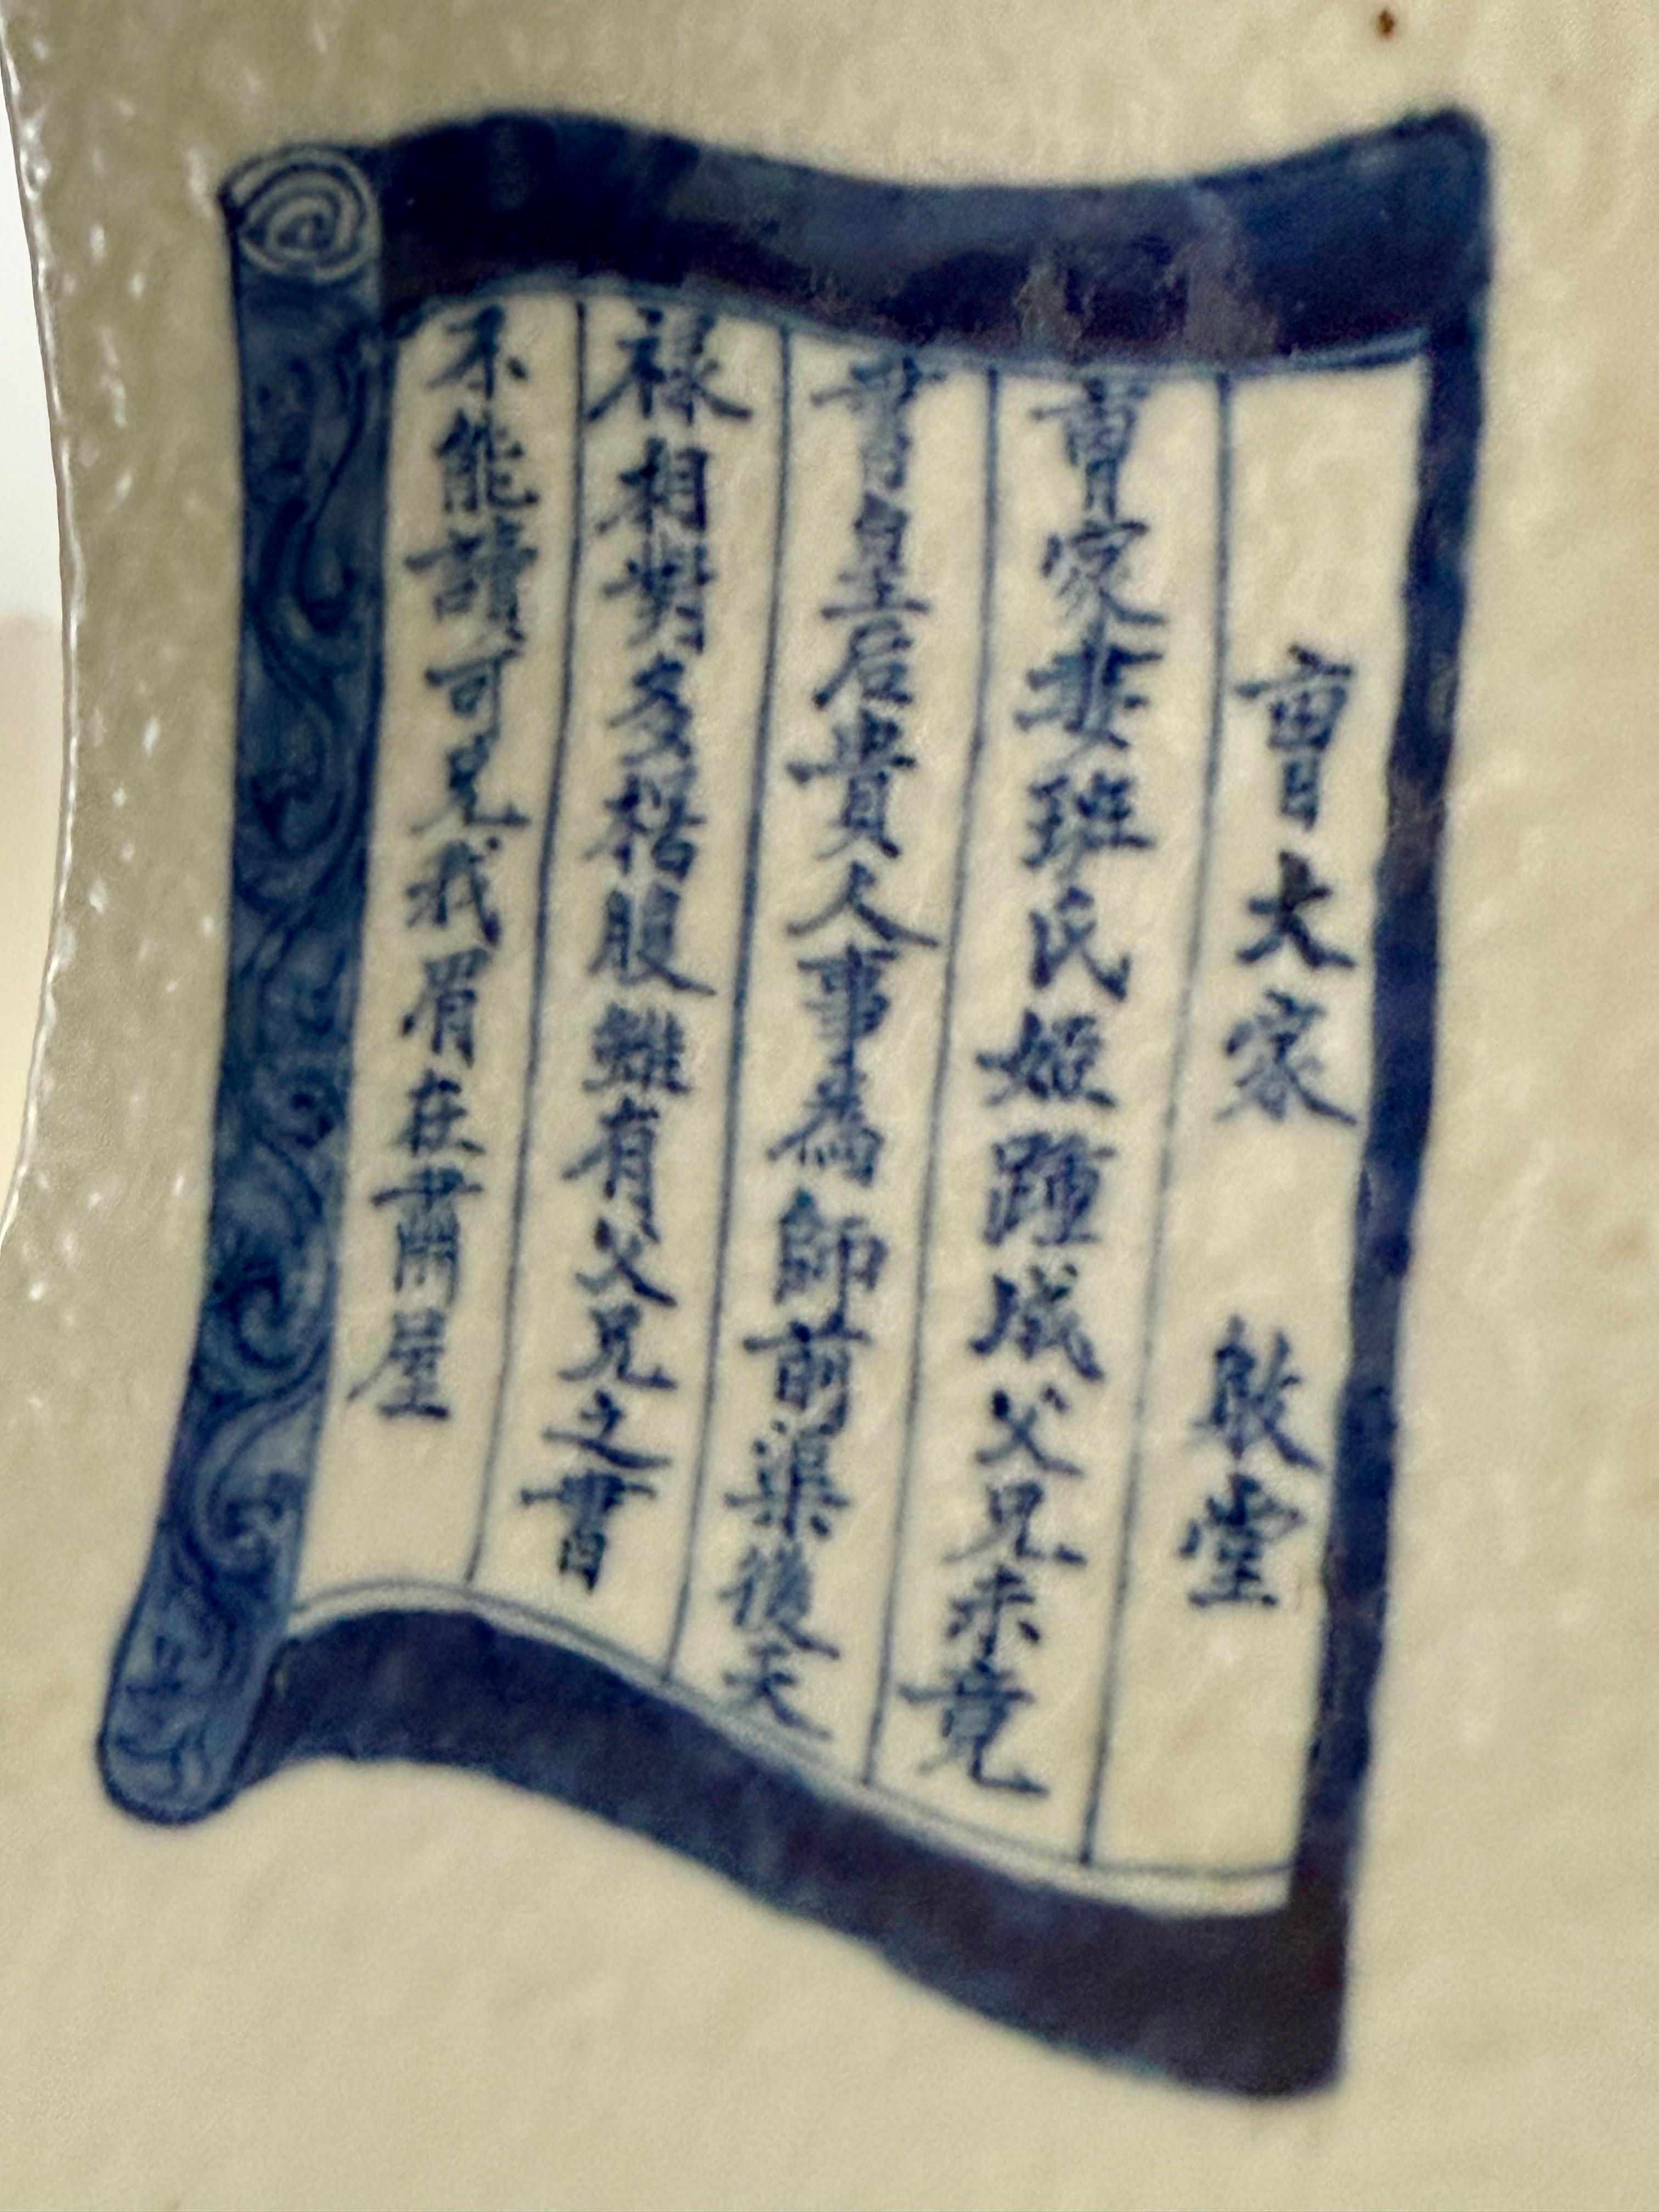 曹大家 敢堂
曹家妻班氏姬踵成父兄未竟
書皇后貴人事為師前渠後天
祿相對多楷股雖有父兄之書
不能讀可見我眉在屋